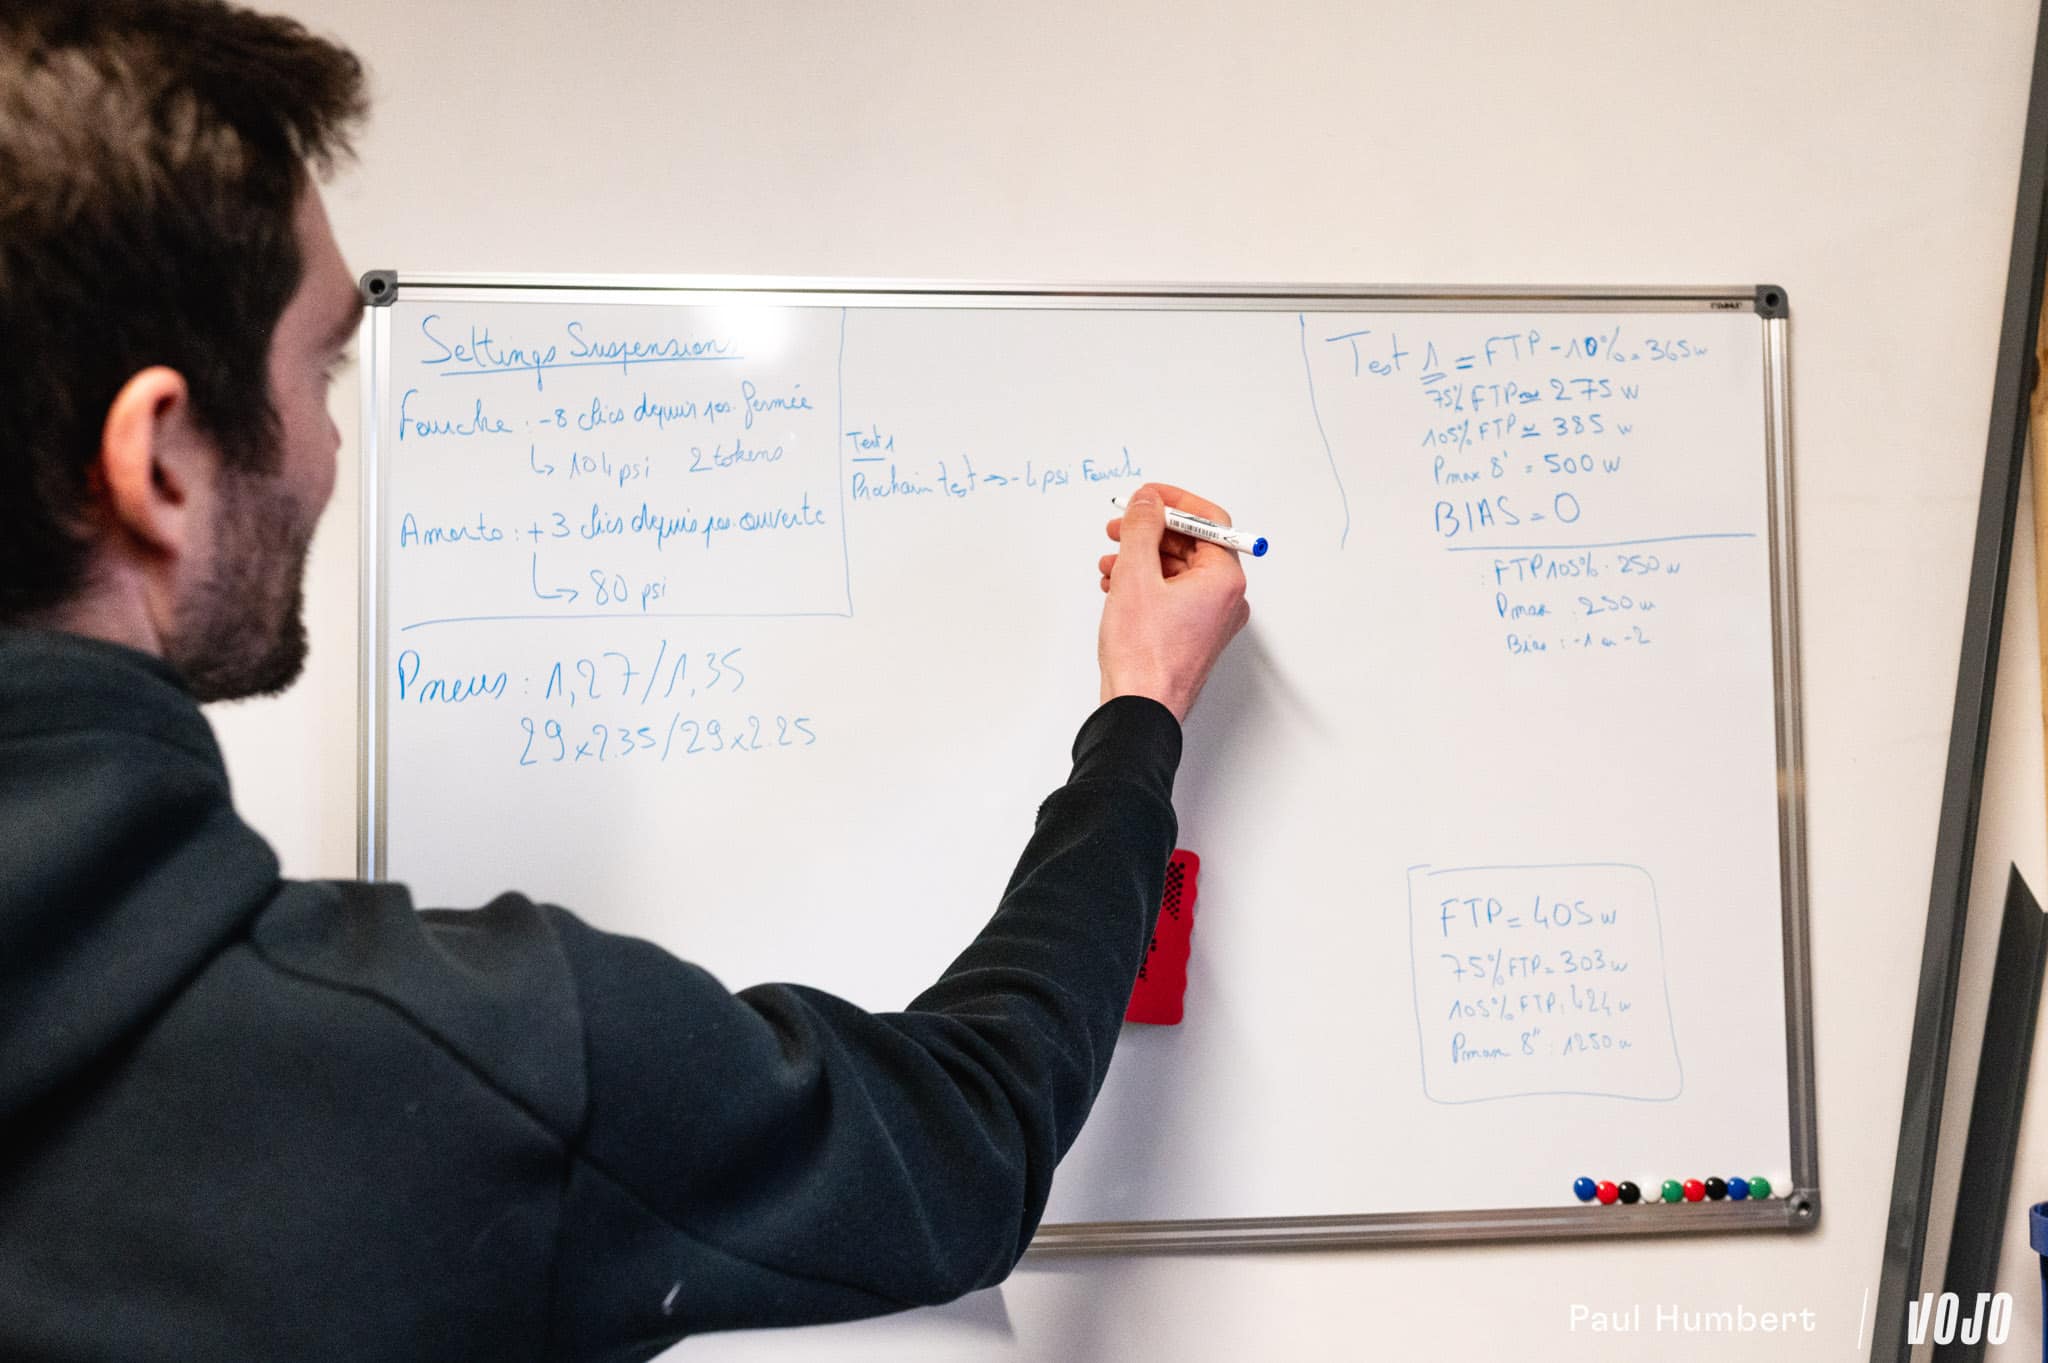 Settings Suspensions
Fourche : -8 clics depuis pos. fermée
↳ 104 psi 2 tokens
Amorto : + 3 clics depuis pos. ouverte
↳ 80 psi
Pneus : 1,27/1,35
29x2.35/29x2.25
Test 1
Prochain test → -4 psi Fourche
Test 1 = FTP -10% = 365w
75% FTP = 275 w
105% FTP ≃ 385 w
Pmax 8' = 500 w
BIAS = 0
FTP 105% : 250 w
Pmax : 250 w
Bias : -1 ou -2
FTP = 405 w
75% FTP = 303 w
105% FTP : 424 w
Pmax 8" : 1250 w
Paul Humbert | VOJO